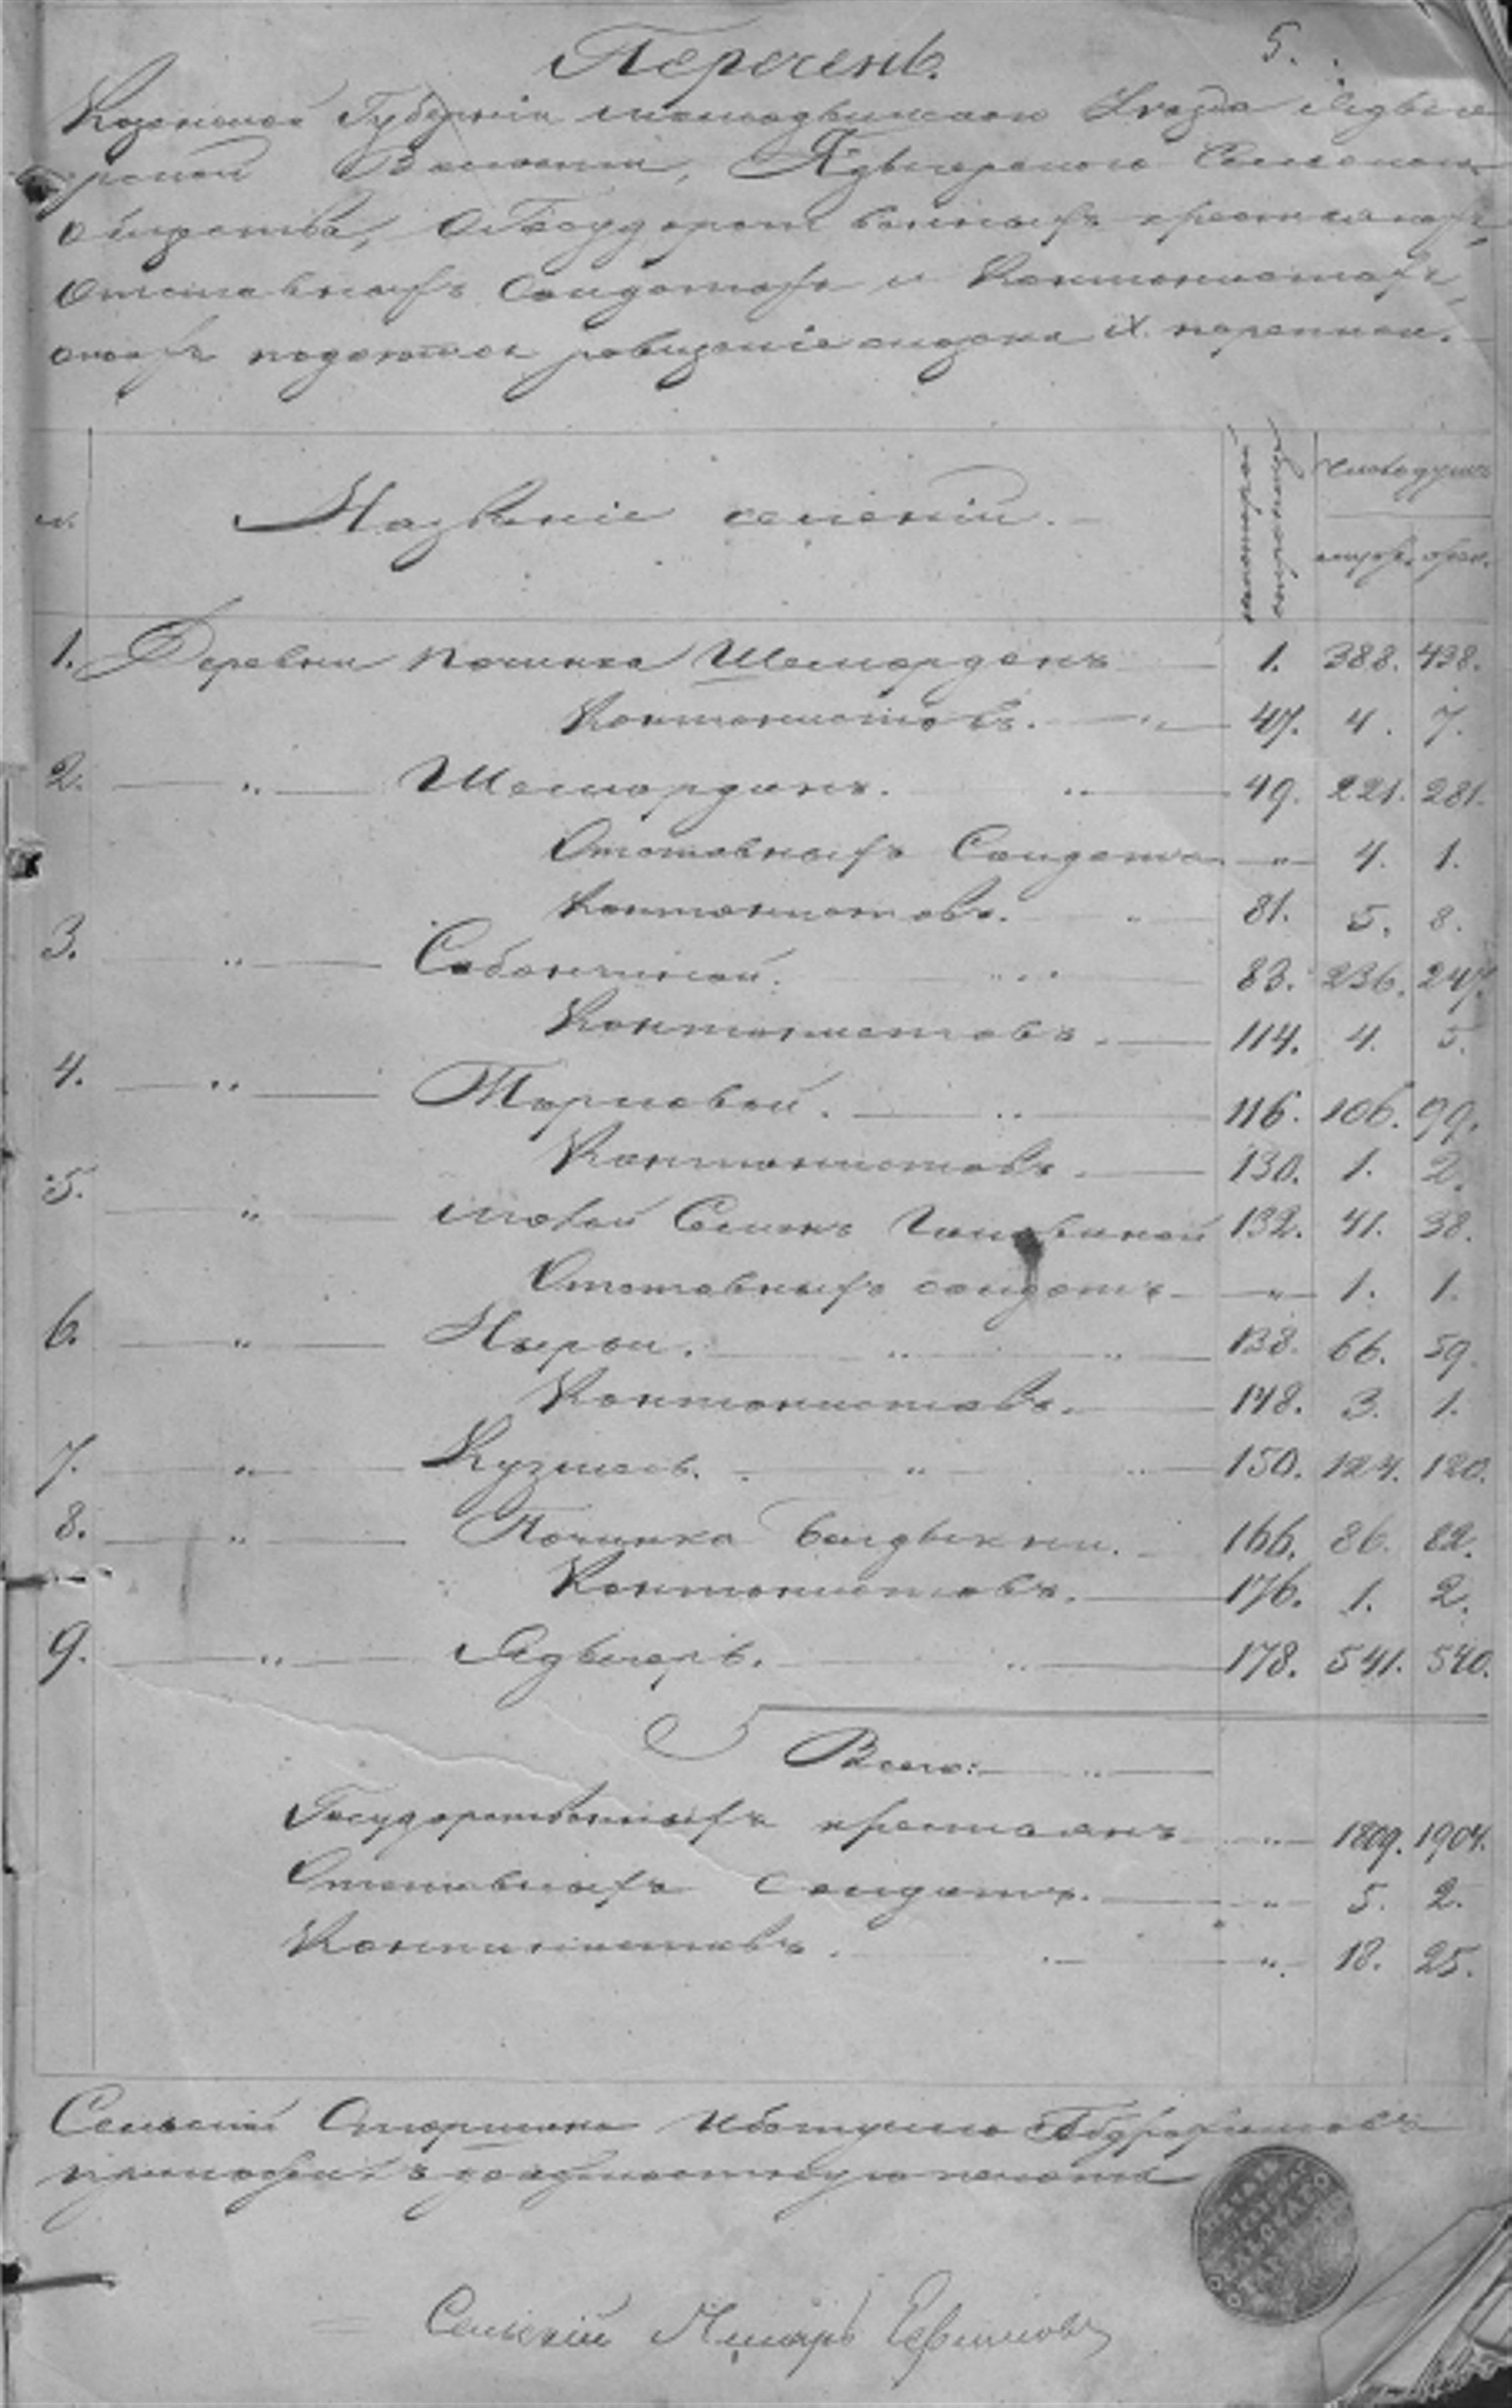 Перечень.
5.
Казанской Губерніи мамадышскаго Уезда Ядыге
рской Волости, Ядыгерского Сельскаго
общества, О Государственныхъ крестьянахъ,
Отставныхъ Солдатахъ и Кантонистахъ,
о коихъ подаются ревизскіе сказки IX. народной.
№.
Названіе селеній.
на которой странице
число душъ
муж. жен.
1. Деревни Починка Шемордонъ 1. 388. 438.
Кантонистовъ. " 47. 4. 7.
2. " Шемордонъ. " 49. 221. 281.
Отставныхъ Солдатъ " 4. 1.
Кантонистовъ. " 81. 5. 8.
3. " Сабанчиной. " 83. 236. 247.
Кантонистовъ. 114. 4. 5.
4. " Тырловой. " 116. 106. 99.
Кантонистовъ 130. 1. 2.
5. " 132. 41. 38.
Отставныхъ солдатъ " 1. 1.
6. " Нырьи. " " 138. 66. 59.
Кантонистовъ. 148. 3. 1.
7. " Кузмесь. " " 150. 124. 120.
8. " Починка 166. 86. 82.
Кантонистовъ. 176. 1. 2.
9. " Ядыгерь. " 178. 541. 540.
Всего: "
Государственныхъ крестьянъ " 1809. 1904.
Отставныхъ Солдатъ. " 5. 2.
Кантонистовъ. " 18. 25.
Сельскій Старшина
приложилъ должностную печать
Сельскій Писарь Ефимовъ